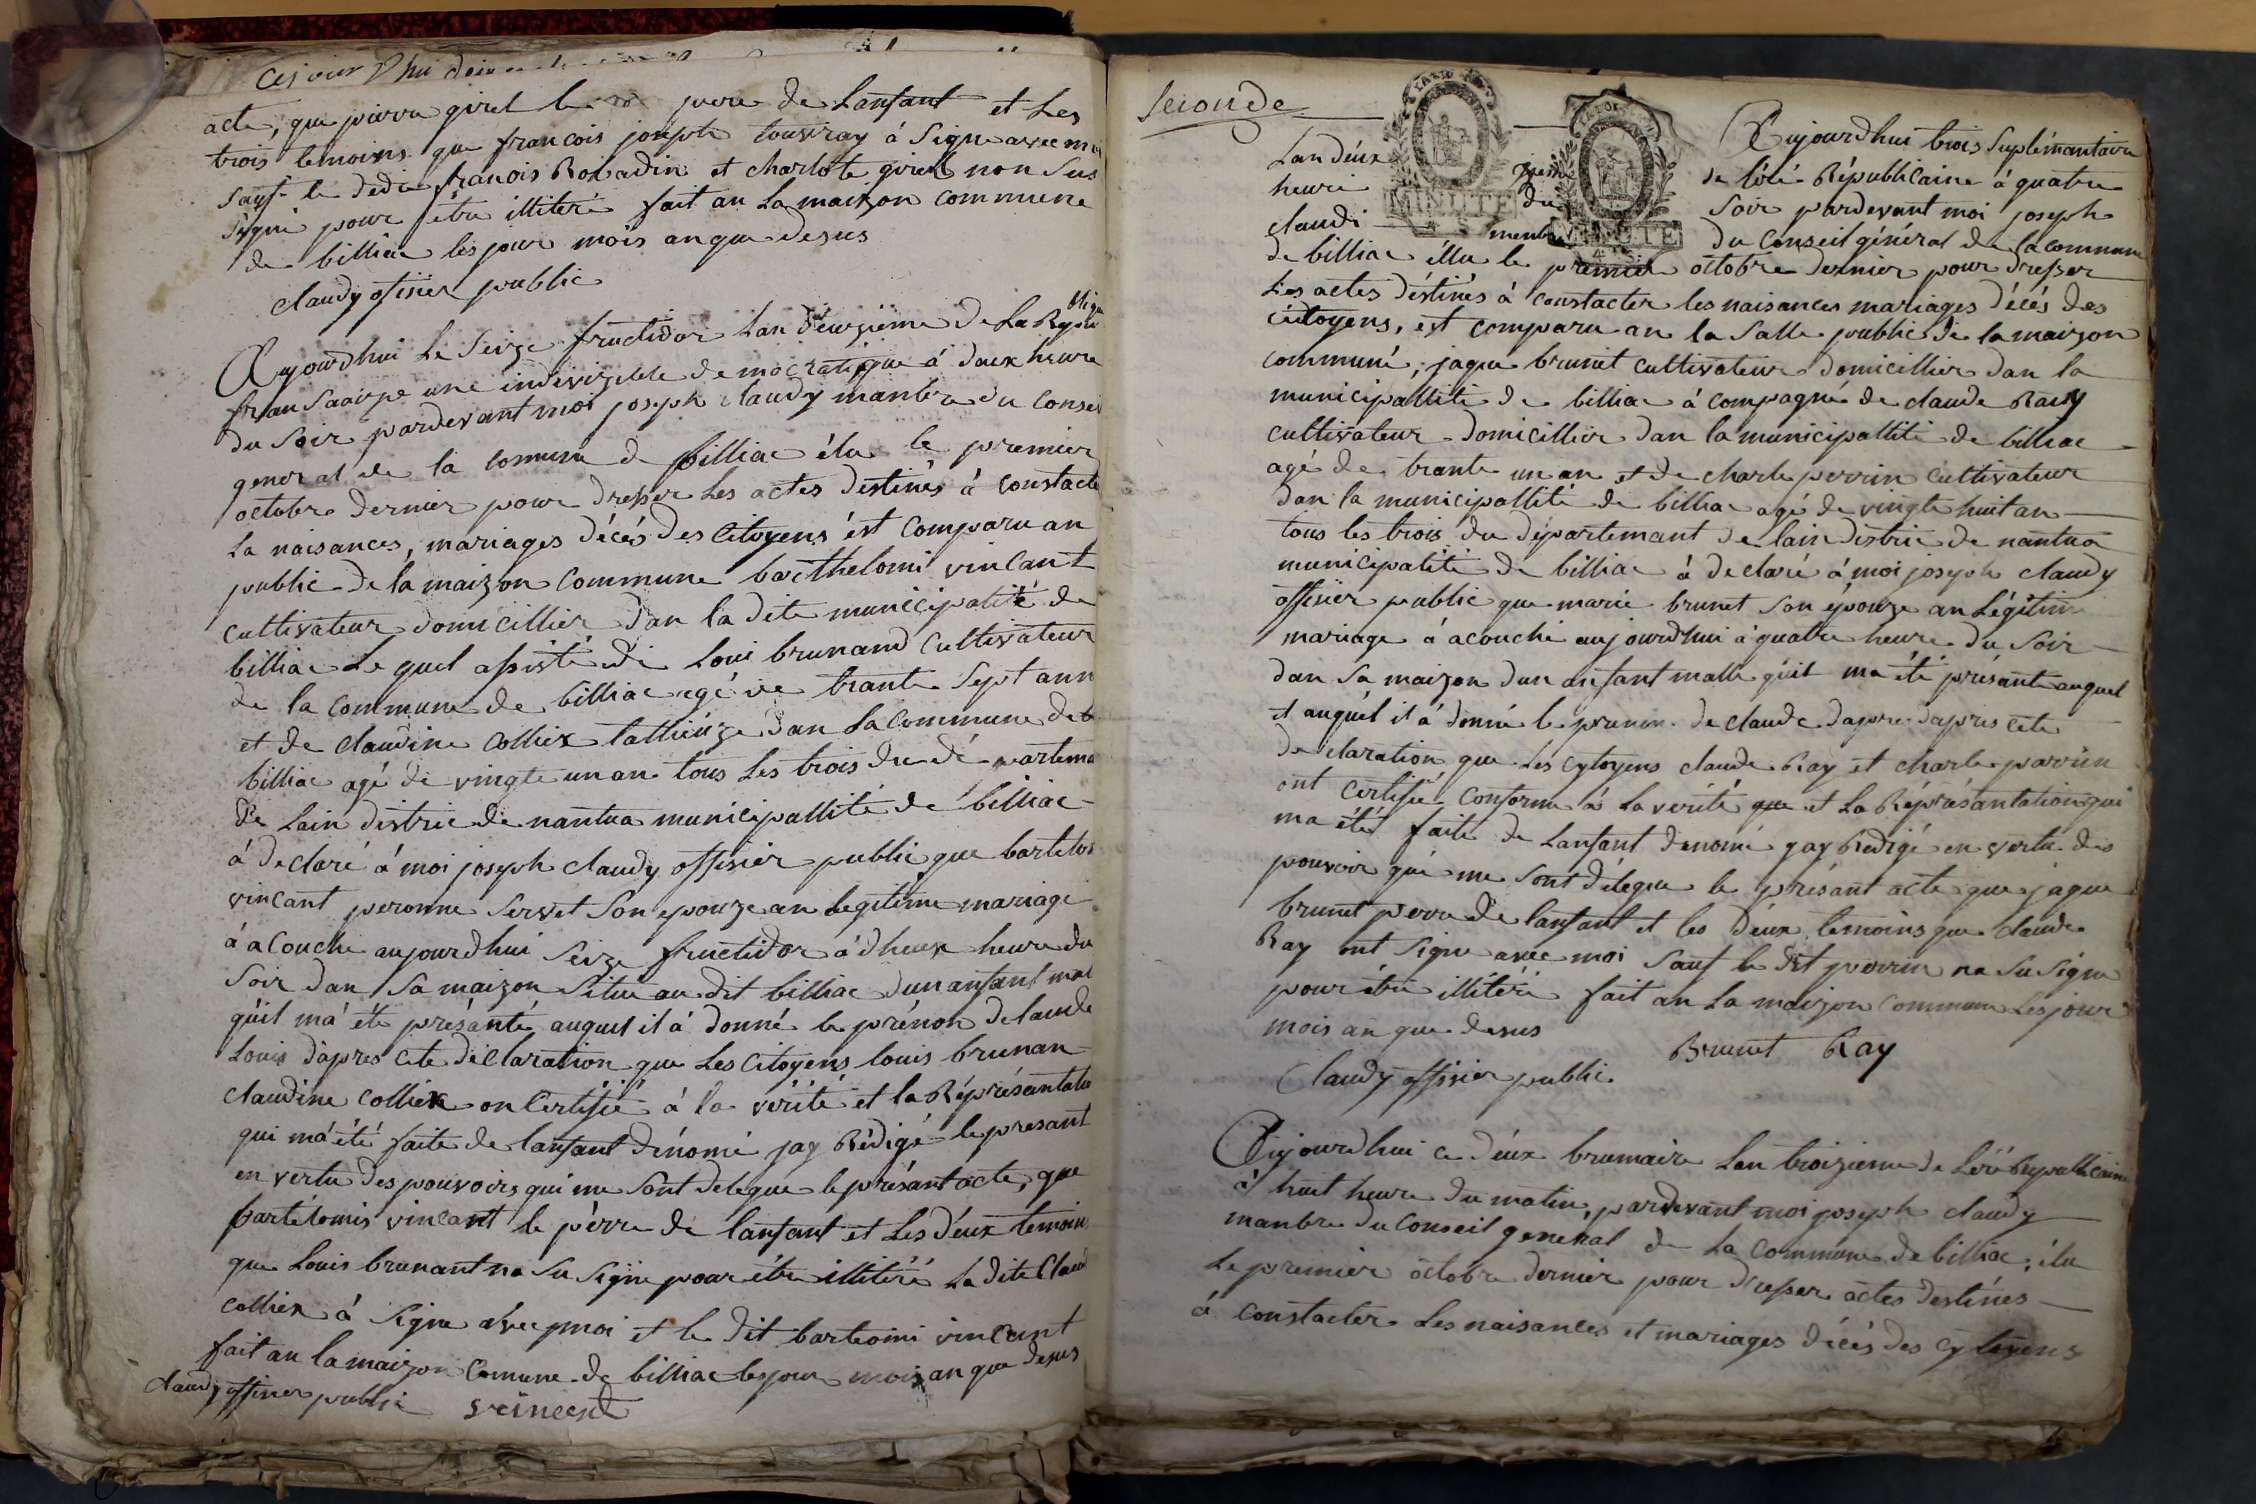 acte, que pierre girel le pere de Lanfant et Les
trois temoins que francois joseph touvray á Signe avec moi
Sauf le dedie franois Robadin et charlote girel non Sus
Signé pour étre illiteré fait an La maizon commune
de billiac les jour mois an que desus
claudy ofisier public
Aujourdhui Le Seize fructidor Lan deuzieme de La Republique
fransaaizpe une indivizible democratique á deux heure
du Soir pardevant moi joseph claudy manbre du Conseil
general de la comune de billiac élu le premier
octobre dernier pour dresser Les actes destinés á constacte
La naisances, mariages décés des Citoyens ést Comparu an
public de la maizon Commune barthelomi vincant
cultivateur domicillier dan la dite municipalité de
billiac Le quel assisté de Loui brunand Cultivateur
de la Commune de billiac agé de trante Sept ann
et de Claudine Colliex tallieuze dan La Commune de
billiac agé de vingte un an tous Les trois du départema
de Lain distric de nantua municipallité de billiac
á declaré á moi joseph claudy offisier public que bartelo
vincant peronne Servet Son epouze an Legitime mariage
á acouche aujourdhui Seize fructidor á dheux heure du
Soir dan Sa maizon Situe au dit billiac dun anfant mal
quil má éte présanté auquel il á donné le prénon de Laude
Louis dápres cete déclaration que Les Citoyens louis brunan
claudine Colliex on Certifié á la vérité et la Répresantatio
qui má été faite de lanfant dénomé jay Rédigé le presant
en vertu des pouvoirs qui me Sont delegue le présant acte, que
bartélomis vincant le pérre de lanfant et Les deux temoin
que Louis brunant na Su Signe pour étre illitéré La dite Claud
Colliex á Signe avec moi et le dit barteomi vincant
fait an la maizon Comune de billiac les jour mois an que desus
claudy offisier public vincent
Seconde
MINUTE
MINUTE
Aujourdhui trois Suplémantaire
Lan deux
de léré Républicaine á quatre
heure du
Soir pardevant moi joseph
claudi menbre
du Conseil général de la commune
de billiac éllu le premier octobre dernier pour dresser
Les actes déstinés á constacter les naisances mariages décés des
citoyens, est comparu an la Salle public de la maizon
Communé, jaque brunet cultivateur domicillier dan la
municipallité de billiac á compagné de claude Ray
cultivateur domicillier dan la municipallité de billiac
agé de trante un an et de charle perrin Cultivateur
dan la municipallité de billiac agé de vingte huit an
tous les trois du départemant de lain distric de nantua
municipalité de billiac á declaré á moi joseph claudy
offisiér public que marie brunet Son épouze an Légitim
mariage á acouché aujourdhui á quatre heure du Soir
dan Sa maizon dun anfant malle quil ma été présante auquel
et auquél il á donné le prenon de claude dapre dapres cete
declaration que Les Cytoyens claude Ray et charle parrin
ont Certifié Conforme á La verité que et La Réprésantation qui
ma été faite de Lanfant denomé jay Redigé en vertu des
pouvoir qui me Sont délégue le présant acte que jaque
brunet perre de lanfant et les deux temoins que claude
Ray ont Signe avec moi Sauf le dit perrin na Su Signe
pour étre illitéré fait an La maizon Commune Les jour
mois an que desus
Brunet Ray
Claudy offisier public
Aujourdhui ce deux brumaire Lan troizieme de Léré Republicaine
á huit heure du matin, pardevant moi joseph claudy
manbre du Conseil general de La Commune de billiac, élu
Le premier octobre dernier pour dresser actes destinés
á constacter Les naisances et mariages décés des cytoyens